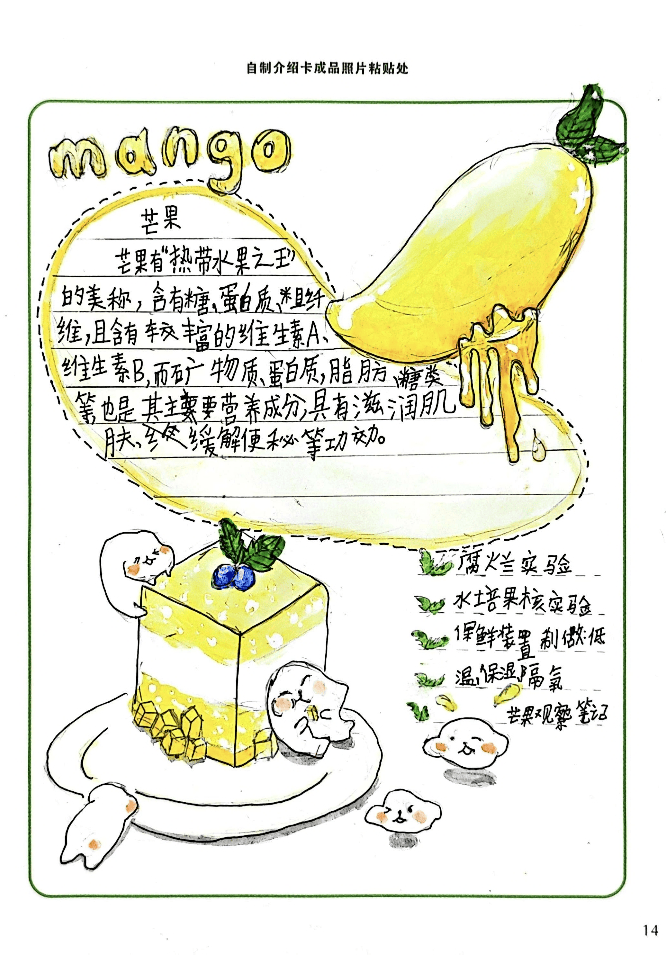 自制介绍卡成品照片粘贴处
mango
芒果
芒果有"热带水果之王"
的美称，含有糖、蛋白质、粗纤
维，且含有较丰富的维生素A、
维生素B，而矿物质、蛋白质，脂肪、糖类
等也是其主要营养成分，具有滋润肌
肤、缓解便秘等功效。
腐烂实验
水培果核实验
保鲜装置 制做：低
温，保湿，隔氧
芒果观察笔记
14